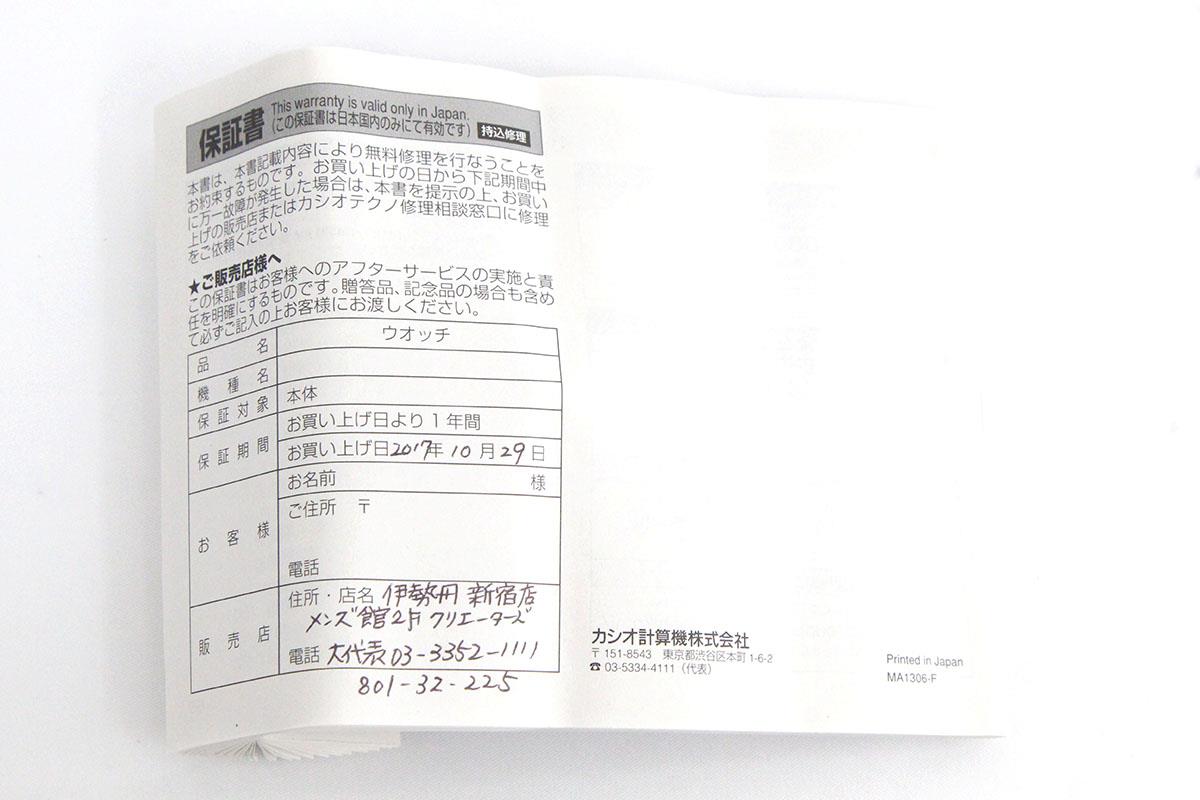 保証書 This warranty is valid only in Japan.
(この保証書は日本国内のみにて有効です) 持込修理
本書は、本書記載内容により無料修理を行なうことを
お約束するものです。お買い上げの日から下記期間中
に万一故障が発生した場合は、本書を提示の上、お買い
上げの販売店またはカシオテクノ修理相談窓口に修理
をご依頼ください。
★ご販売店様へ
この保証書はお客様へのアフターサービスの実施と責
任を明確にするものです。贈答品、記念品の場合も含め
て必ずご記入の上お客様にお渡しください。
品名 ウオッチ
機種名
保証対象 本体
保証期間 お買い上げ日より1年間
お買い上げ日2017年10月29日
お客様 お名前 様
ご住所 〒
電話
販売店 住所・店名 伊勢丹 新宿店
メンズ館2F クリエーターズ
電話 大代表03-3352-1111
801-32-225
カシオ計算機株式会社
〒151-8543 東京都渋谷区本町1-6-2
☎ 03-5334-4111(代表)
Printed in Japan
MA1306-F